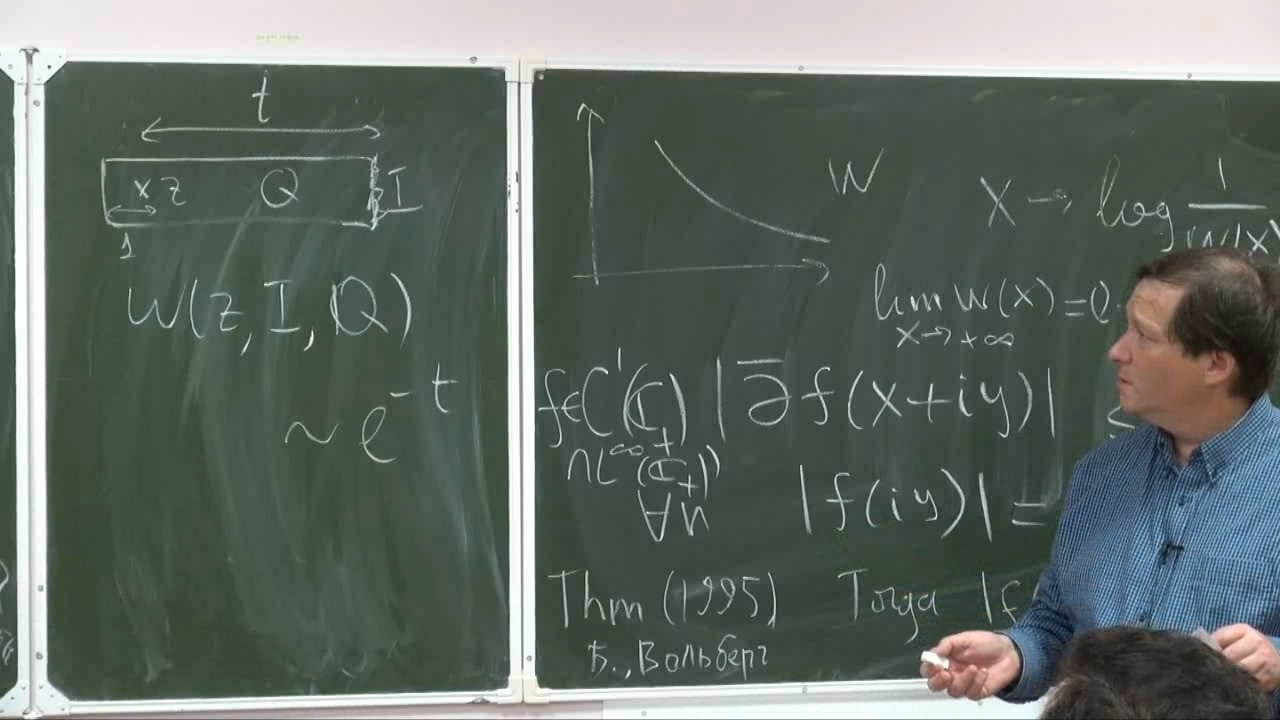 t
x z Q I
1
W(z, I, Q)
~ e^{-t}
W
x → log 1/W(x)
lim W(x) = 0
x → +∞
f ∈ C¹(ℂ₊) |∂̄f(x+iy)| ≤
∩ L^∞(ℂ₊)
∀n |f(iy)| =
Thm (1995) Тогда |f
Б., Вольберг